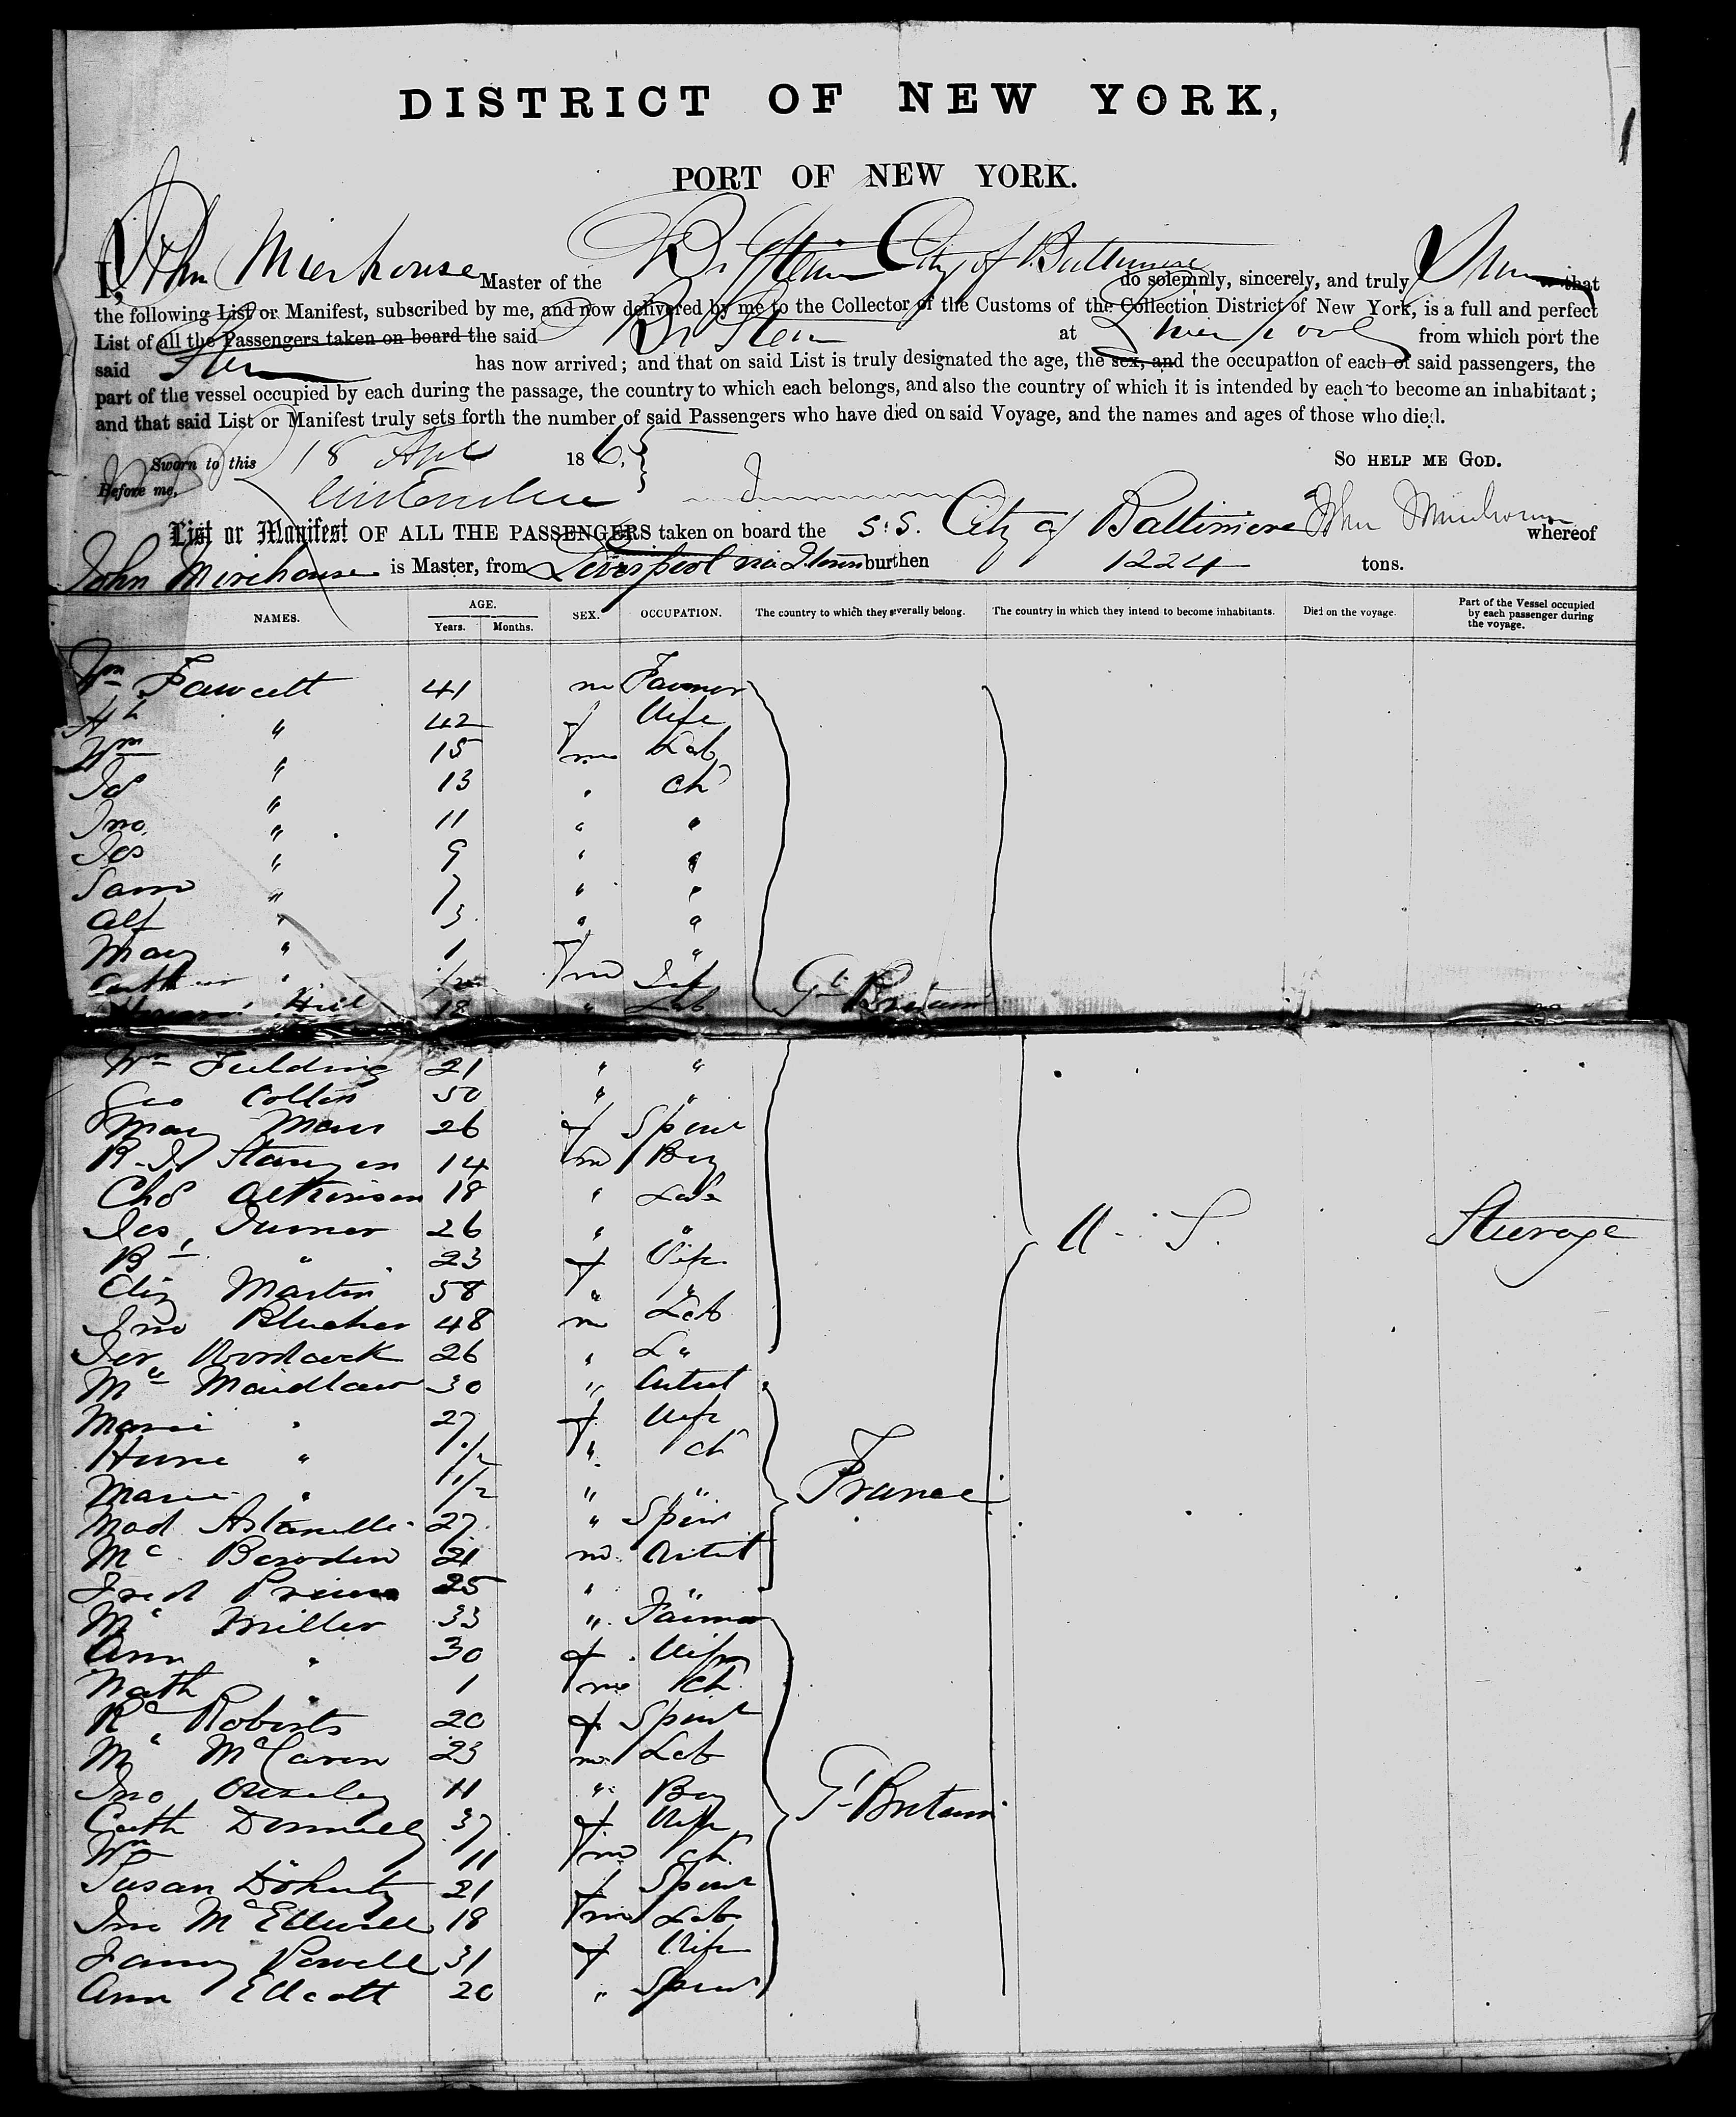 1
DISTRICT OF NEW YORK,
PORT OF NEW YORK.
I, John Mirehouse Master of the Br Steam City of Baltimore do solemnly, sincerely, and truly Swear that
the following List or Manifest, subscribed by me, and now delivered by me to the Collector of the Customs of the Collection District of New York, is a full and perfect
List of all the Passengers taken on board the said Br Steam at Liverpool from which port the
said Steam has now arrived; and that on said List is truly designated the age, the sex, and the occupation of each of said passengers, the
part of the vessel occupied by each during the passage, the country to which each belongs, and also the country of which it is intended by each to become an inhabitant;
and that said List or Manifest truly sets forth the number of said Passengers who have died on said Voyage, and the names and ages of those who died.
Sworn to this 18 Apl 186 So HELP ME GOD.
Before me,
List or Manifest OF ALL THE PASSENGERS taken on board the S.S. City of Baltimore John Mirehouse whereof
John Mirehouse is Master, from Liverpool via Qtown burthen 1224 tons.
NAMES. AGE. Years. Months. SEX. OCCUPATION. The country to which they severally belong. The country in which they intend to become inhabitants. Died on the voyage. Part of the Vessel occupied by each passenger during the voyage.
Wm Fawcett 41 m Farmer
" 42 f Wife
Wm " 15 m Lab
" 13 " Ch
Jno " 11 " "
Jos " 9 " "
Sam " 7 " "
Alf " 3 " "
Mary " 1 f "
" m Inf
Hill 18 " Lab Gt Britain
Wm Fielding 21 " "
Geo Collin 50 " "
Mary 26 f Spins
14 m Boy
Chs Atkinson 18 " Lab
Jas Turner 26 " " U.S. Steerage
" 23 f Wife
Eliz Martin 58 " "
Jno Blucher 48 m Lab
Woodcock 26 " L "
30 " Artist
Marie " 27 f Wife
" " Ch
Marie " 11/12 " " France
Mad 27 " Spins
21 m Artist
Fred 25 " "
Miller 33 " Farmer
Ann " 30 f Wife
Nath " 1 m Ch
Roberts 20 f Spins
McCaren 23 m Lab
Jno Ouseley 11 " Boy Gt Britain
Cath Donnelly 37 f Wife
Wm " 11 m Ch
Susan Doherty 21 f Spins
Jno 18 m Lab
Fanny Powell 31 f Wife
Ann Ellcott 20 " Spins